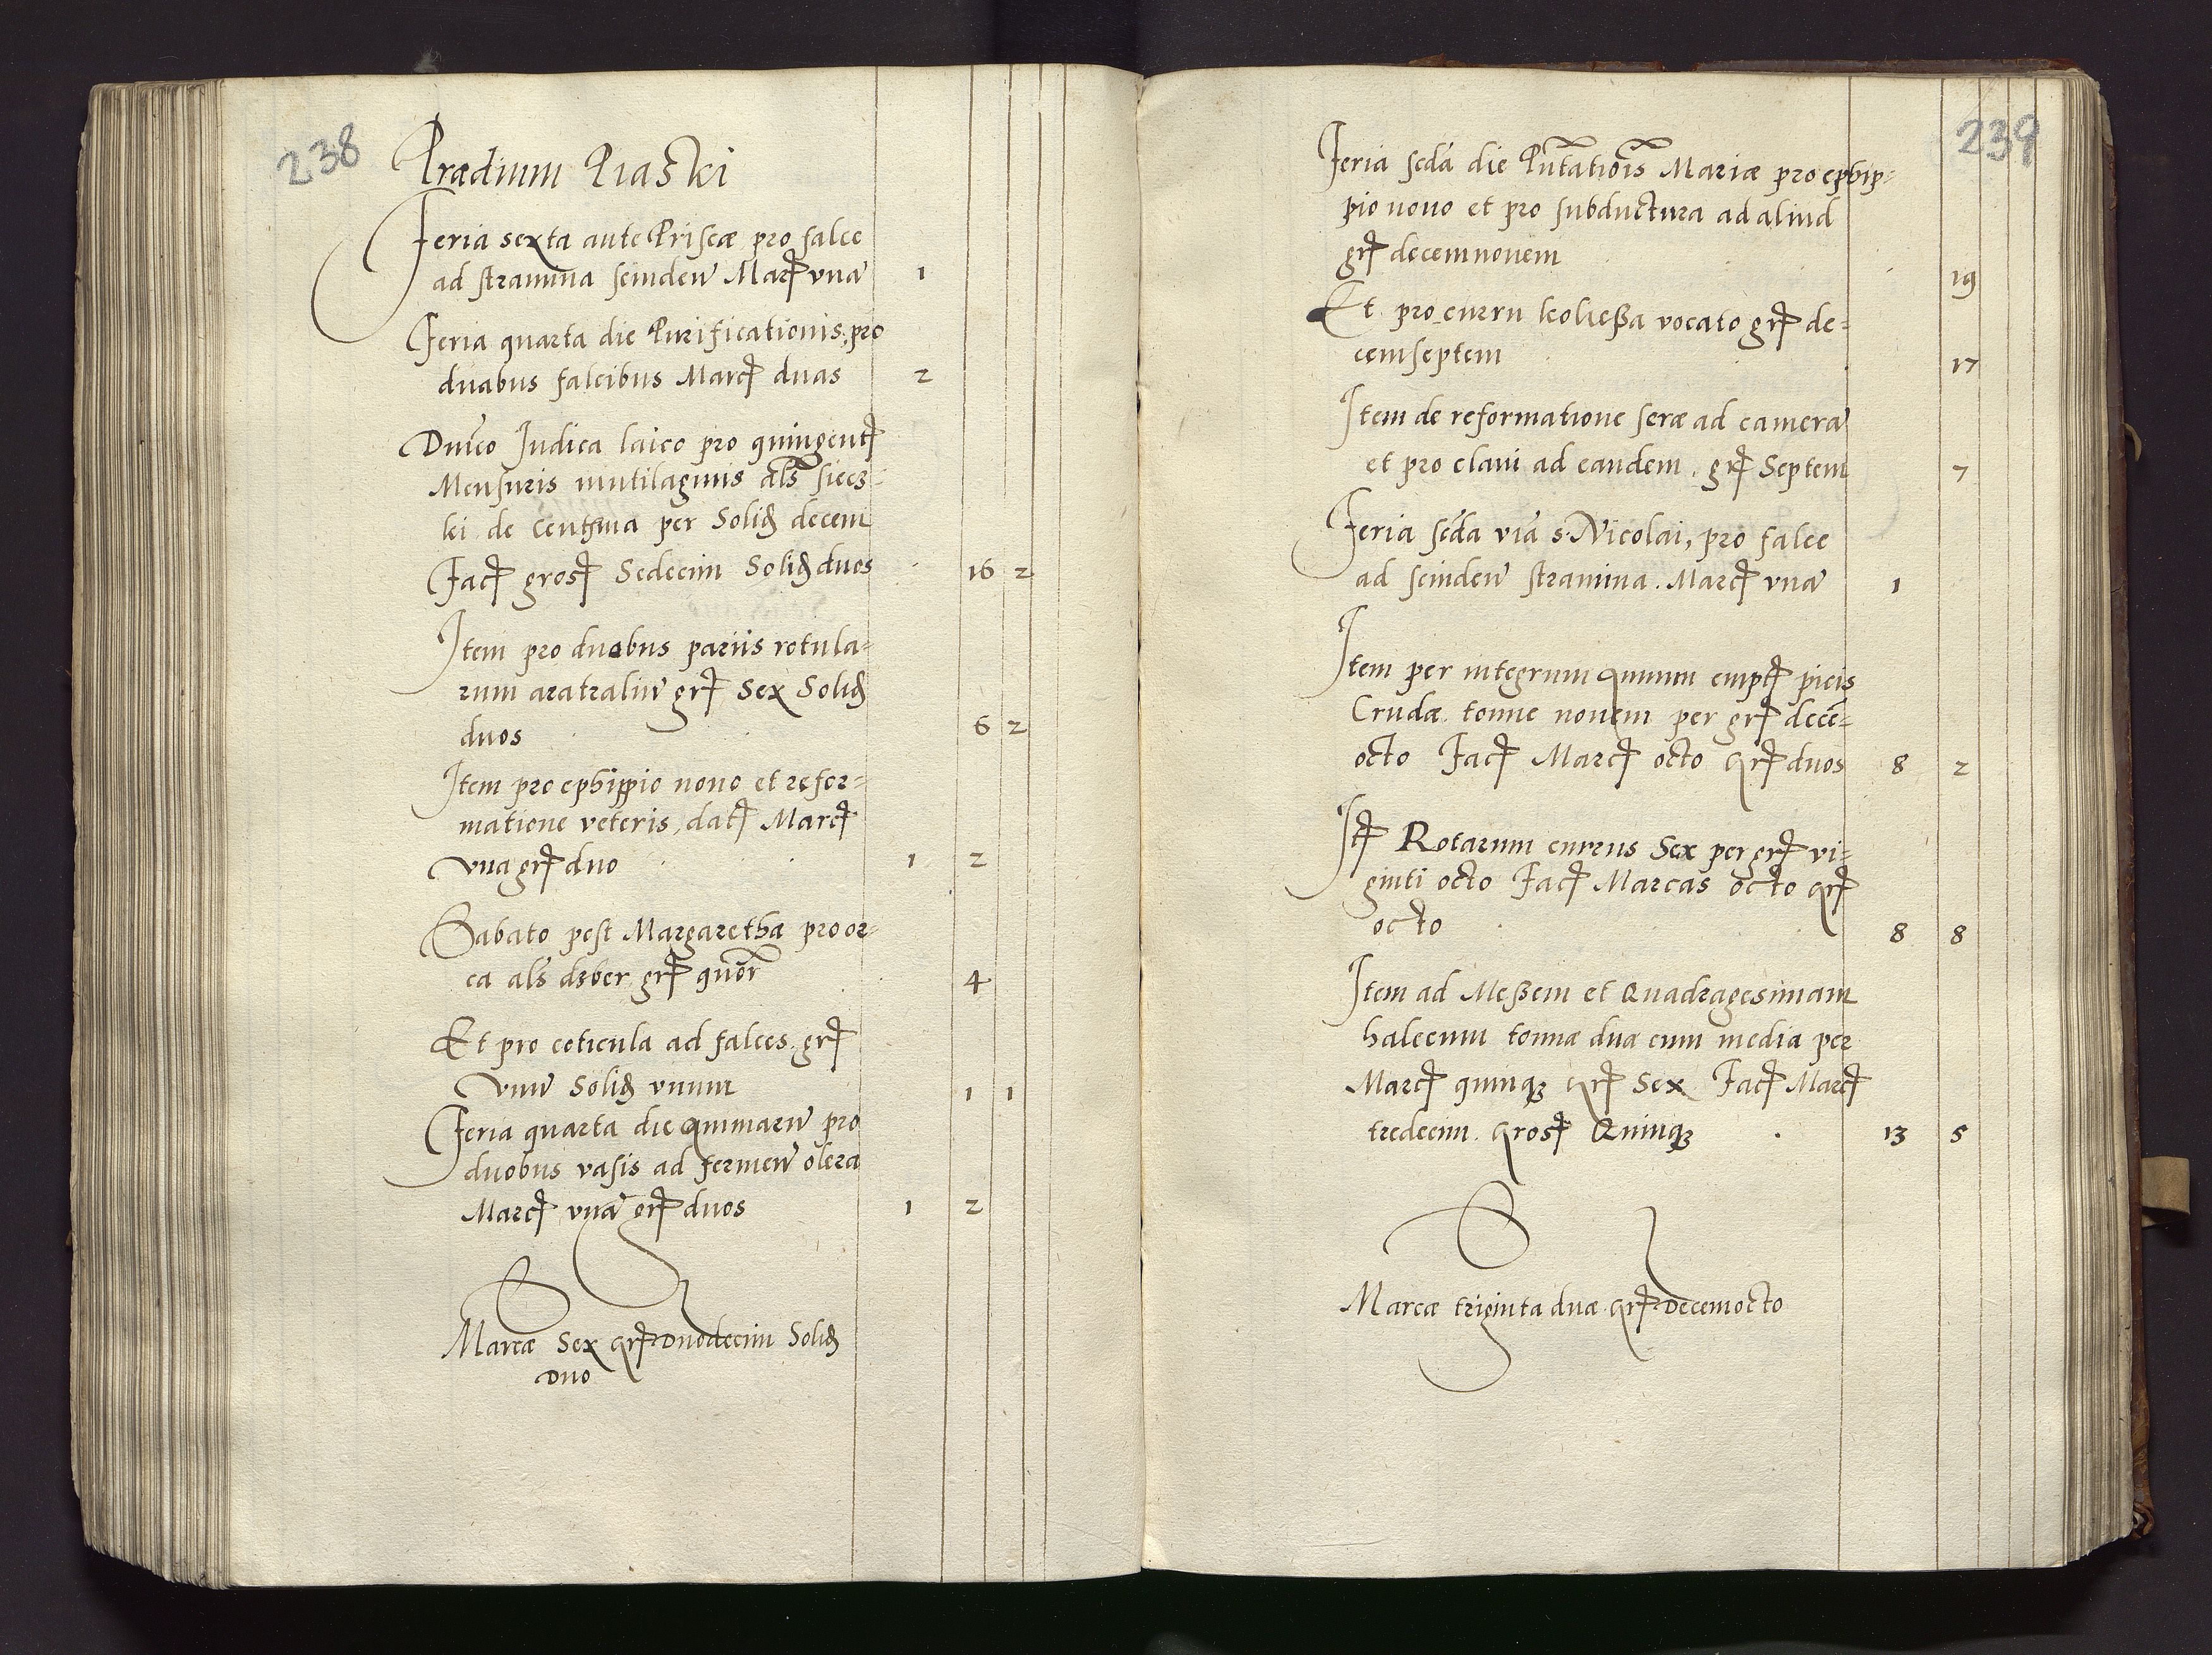 238
Prædium Piaski
Feria sexta ante Priscæ pro falce
ad stramina scinden̄ Marcꝭ vnā 1
Feria quarta die Purificationis, pro
duabus falcibus Marcꝭ duas 2
Dn̄ico Iudica laico pro quingentꝭ
Mensuris mutilaginis als siecz-
ki de per Solid decem
Facꝭ grosꝭ Sedecim Solid duos 16 2
Item pro duobus pariis rotula=
rum aratraliū grꝭ Sex Solid
duos 6 2
Item pro ephippio nouo et refor=
matione veteris, datꝭ Marcꝭ
vna grꝭ duo 1 2
Sabato post Margaretha pro or=
ca als dzber grꝭ quōr 4
Et pro coticula ad falces. grꝭ
vnū Solid vnum 1 1
Feria quarta die Cinnarū pro
duobus vasis ad fermen̄ olera
Marcꝭ vnā grꝭ duos 1 2
Marcæ Sex grꝭ Duodecim Solid
Duo
239
Feria scda die Pn̄tatiōis Mariæ pro ephip=
pio nouo et pro subductura ad aliud
grꝭ decemnouem 19
Et pro curru koliessa vocato grꝭ de=
cemseptem 17
Item de reformatione seræ ad camerā
et pro claui ad eandem. grꝭ Septem 7
Feria scda viā s. Nicolai, pro falce
ad scinden̄ stramina. Marcꝭ vnā 1
Item per integrum annum emptꝭ picis
Crudæ tonne nouem per grꝭ decē=
octo Facꝭ Marcꝭ octo grꝭ duos 8 2
Itꝭ Rotarum currus Sex per grꝭ vi=
ginti octo Facꝭ Marcas octo grꝭ
octo 8 8
Item ad Messem et Quadragesimam
halecum tonnæ duæ cum media per
Marcꝭ quinqꝫ grꝭ Sex Facꝭ Marcꝭ
tredecim. Grosꝭ Quinqꝫ 13 5
Marcæ triginta duæ grꝭ Decemocto